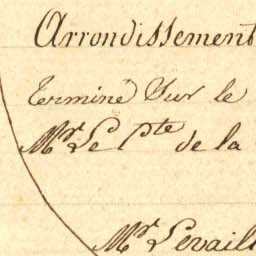 Arrondissement
Terminé Sur le
Mr. Le Cte de la
Mr. Levaill